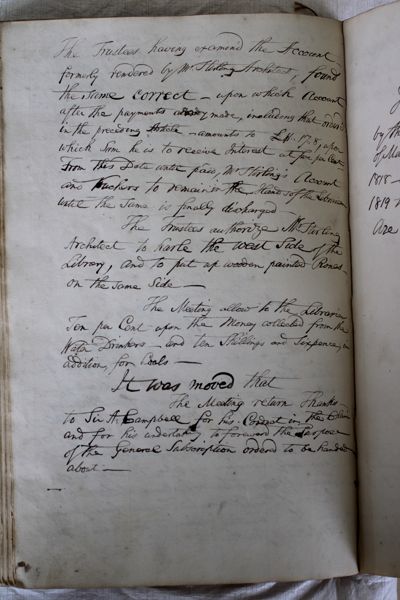 The Trustees having examined the Account
formerly rendered by Mr Stirling Architect, found
the Same correct — upon which Account
after the payments already made, including that order'd
in the preceding Article — amounts to £41.17.8, upon
which Sum he is to receive Interest at five per Cent
From this Date until paid, Mr Stirling's Account
and Vouchers to remain in the Hands of the Librarian
until the Same is finally discharged —
The Trustees authorize Mr Stirling
Architect to harle the west Side of the
Library, and to put up wooden painted Rones
on the Same Side —
The Meeting allow to the Librarian
Ten per Cent upon the Money collected from the
Water Drinkers — and ten Shillings and Sixpence, in
addition, for Coals —
It was moved that
The Meeting return Thanks
to Sir A. Campbell for his Conduct in the Chair
and for his undertaking to forward the purpose
of the General Subscription ordered to be handed
about —
by th
of Ma
1818 —
1819 w
Are